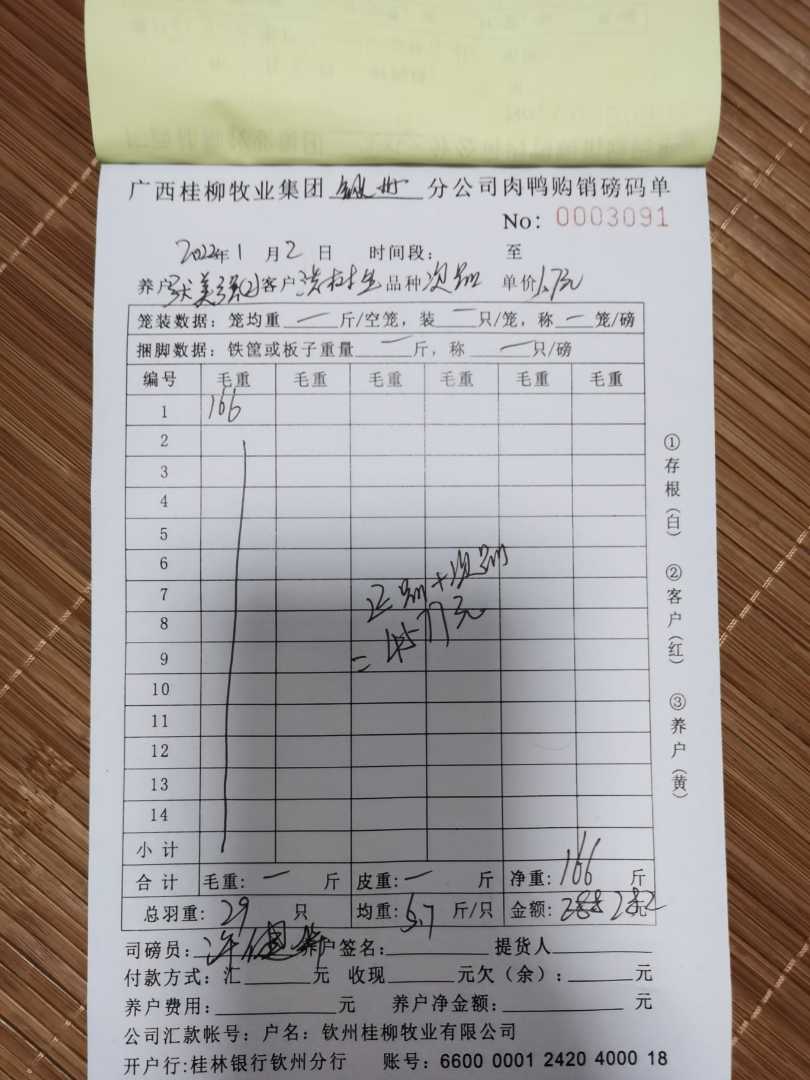 广西桂柳牧业集团 钦州 分公司肉鸭购销磅码单
No: 0003091
2022年1月2日 时间段: 至
养户 美强(2) 客户 品种 次鸭 单价 1.7元
笼装数据: 笼均重 一 斤/空笼, 装 一 只/笼, 称 一 笼/磅
捆脚数据: 铁筐或板子重量 一 斤, 称 一 只/磅
编号 毛重 毛重 毛重 毛重 毛重 毛重
1 166
2
3
4
5
6
7
8
9
10
11
12
13
14
正鸭+次鸭
=4577元
小计
合计 毛重: 一 斤 皮重: 一 斤 净重: 166 斤
总羽重: 29 只 均重: 5.7 斤/只 金额: 282元
司磅员: 养户签名: 提货人
付款方式: 汇 元 收现 元欠(余): 元
养户费用: 元 养户净金额: 元
公司汇款帐号: 户名: 钦州桂柳牧业有限公司
开户行:桂林银行钦州分行 账号: 6600 0001 2420 4000 18
①存根(白) ②客户(红) ③养户(黄)